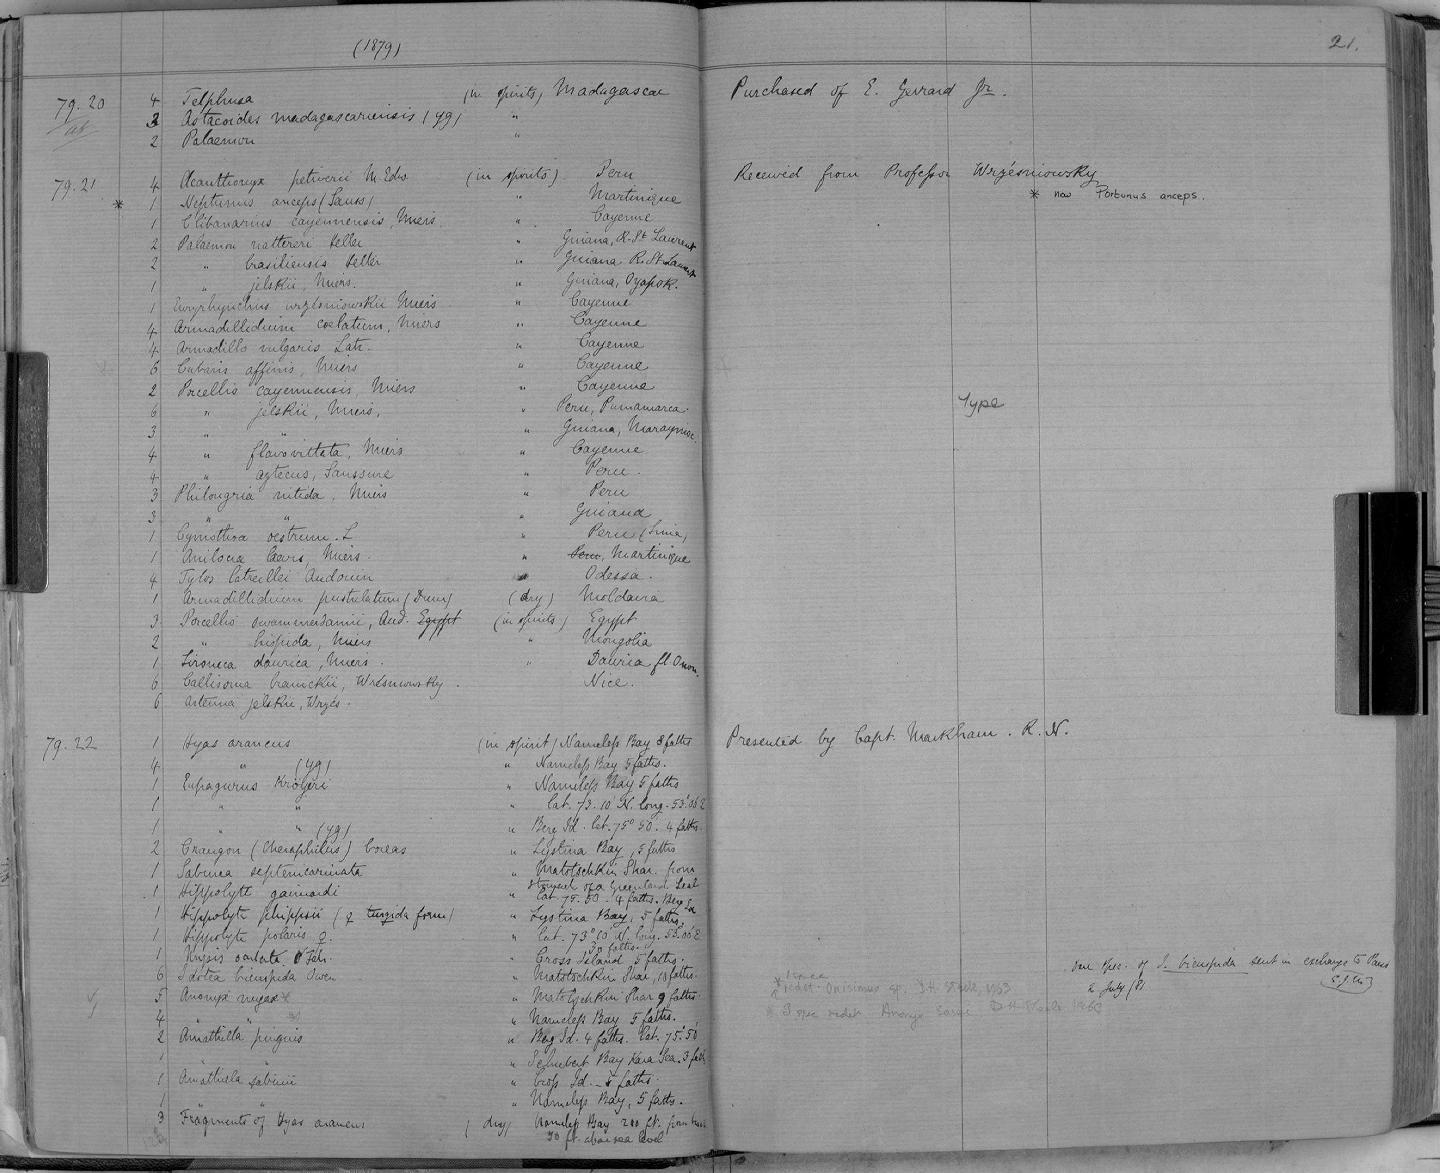 (1879)
21.
79.20 4 Telphusa (in spirits) Madagascar Purchased of E. Gerrard Jr.
3 Astacoides madagascariensis (yg) "
2 Palaemon "
79.21 4 Acanthonyx petiverii M. Edw (in spirits) Peru Received from Professor Wrześniowsky
* 1 Neptunus anceps (Sauss) " Martinique * now Portunus anceps.
1 Clibanarius cayennensis, Miers " Cayenne
2 Palaemon nattereri Heller " Guiana, R. St Laurent
2 " brasiliensis Heller " Guiana R. St Laurent
1 " jelskii, Miers. " Guiana, Oyapok.
1 Euryrhynchus wrzesniowskii Miers " Cayenne
4 Armadillidium caelatum, Miers " Cayenne
4 Armadillo vulgaris Latr. " Cayenne
6 Cubaris affinis, Miers " Cayenne
2 Porcellio cayennensis, Miers " Cayenne
6 " jelskii, Miers, " Peru, Pumamarca. Type
3 " " " Guiana,
4 " flavovittata, Miers " Cayenne
4 " aztecus, Saussure " Peru.
3 Philougria nitida, Miers " Peru
3 " " " Guiana
1 Cymothoa oestrum. L " Peru (Lima)
1 Anilocra laevis, Miers. " Peru, Martinique
4 Tylos latreillei Audouin " Odessa.
1 Armadillidium pustulatum (Dum) (dry) Moldavia
3 Porcellio swammerdamii, Aud. Egypt (in spirits) Egypt
2 " hispida, Miers " Mongolia
1 Livoneca daurica, Miers. " Dauria fl. Onon.
6 Callisoma branickii, Wrésniowsky. Nice.
6 jelskii, Wrześ.
79.22 1 Hyas araneus (in spirit) Nameless Bay 8 faths Presented by Capt. Markham. R. N.
4 " (yg) " Nameless Bay 5 faths.
1 Eupagurus Kröyeri " Nameless Bay 5 faths
1 " " " lat. 73.10' N. long. 53°.06' E
1 " " (yg) " Berg Id. lat. 75° 50'. 4 faths.
2 Crangon (Cheraphilus) boreas " Lystina Bay, 5 faths
1 Sabinea septemcarinata " Matotschkin Shar. from
stomach of a Greenland Seal
1 Hippolyte gaimardi " lat. 75. 50. 4 faths. Berg Id
1 Hippolyte phippsii (♀ turgida form) " Lystina Bay, 5 faths.
1 Hippolyte polaris ♀. " lat. 73° 10' N. long. 53°.06' E
30 faths.
1 Mysis oculata O Fabr. " Cross Island 5 faths.
6 Idotea bicuspida Owen " Matotschkin Shar, 10 faths. one spec. of I. bicuspida sent in exchange to Paris
2 July /81
5 Anonyx nugax * " Matotschkin Shar 9 faths. redet. Onisimus sp. D.H. Steele, 1963
4 " " " Nameless Bay 5 faths. 3 spec redet. Anonyx sarsi D H Steele 1963
2 Amathilla pinguis " Berg Id. 4 faths. lat. 75°.50'
1 " " " Schubert Bay Kara Sea. 3 faths
1 Amathilla sabinii " Cross Id. 5 faths.
1 " " " Nameless Bay, 5 faths.
3 Fragments of Hyas araneus (dry) Nameless Bay 200 ft. from
30 ft. above sea level